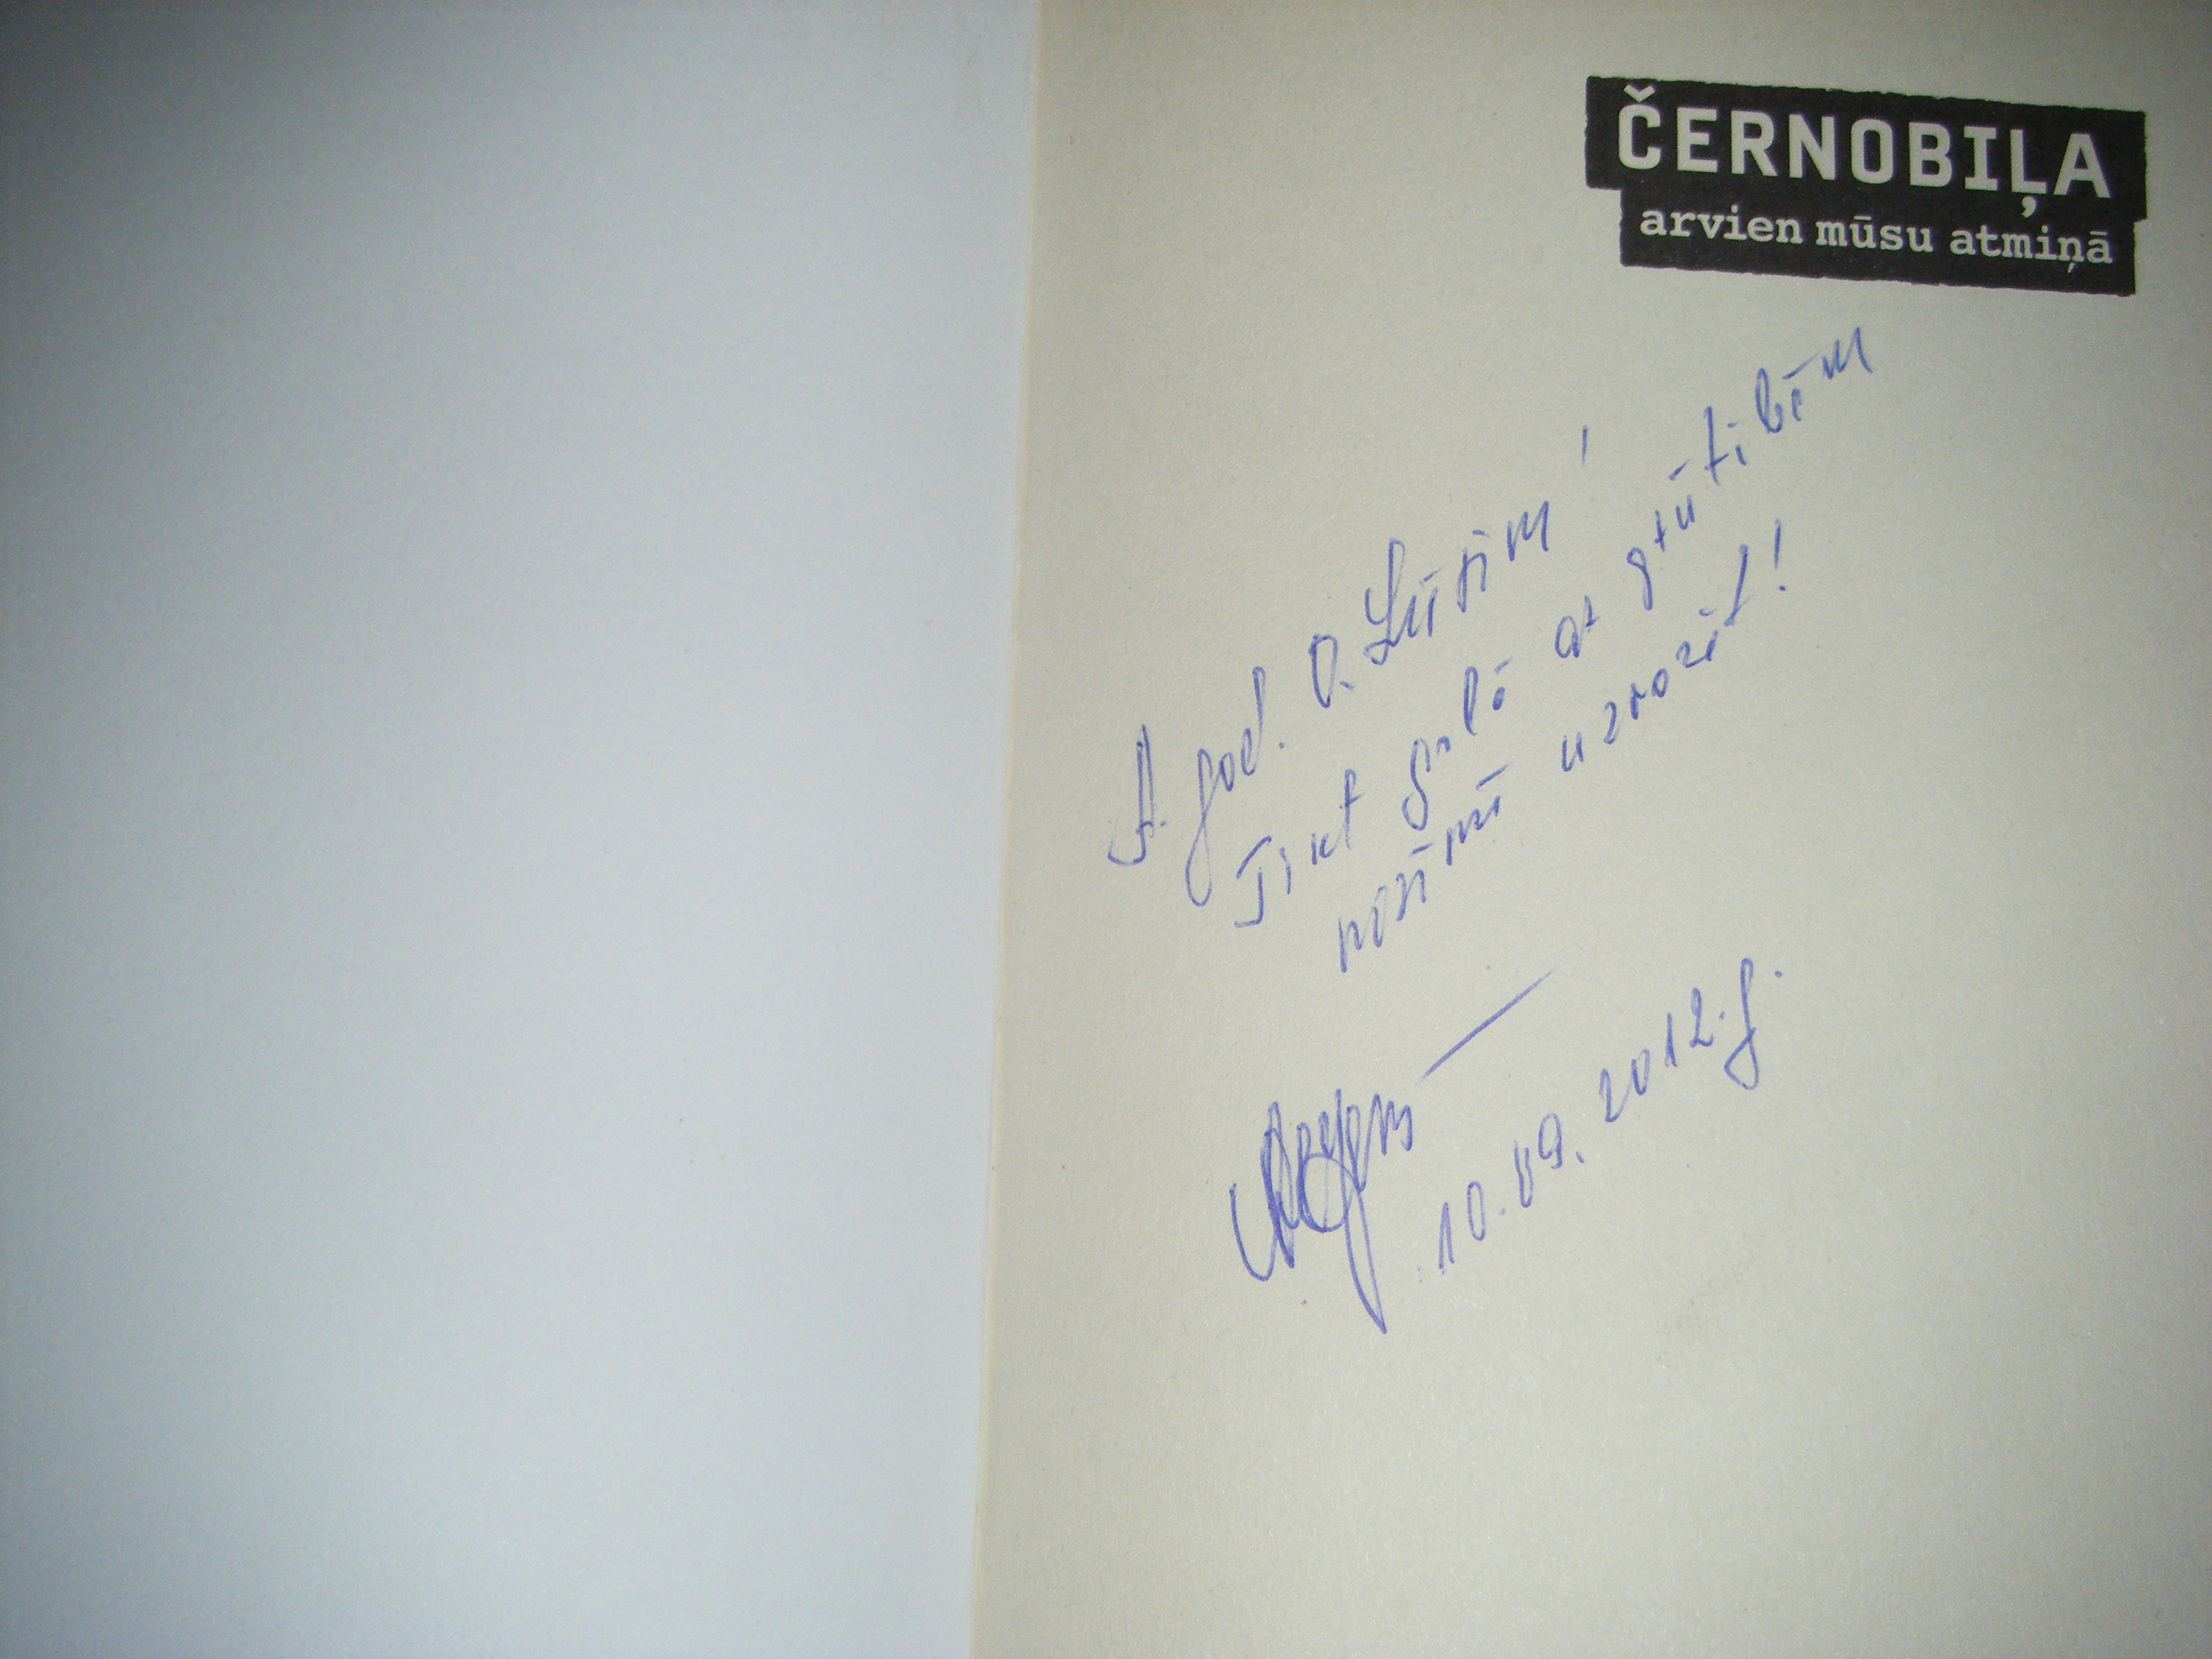 ČERNOBIĻA
arvien mūsu atmiņā
A. god. O. Lūsim!
Tikt galā ar grūtībām
nozīmē uzrozīt!
10.09.2012.g.